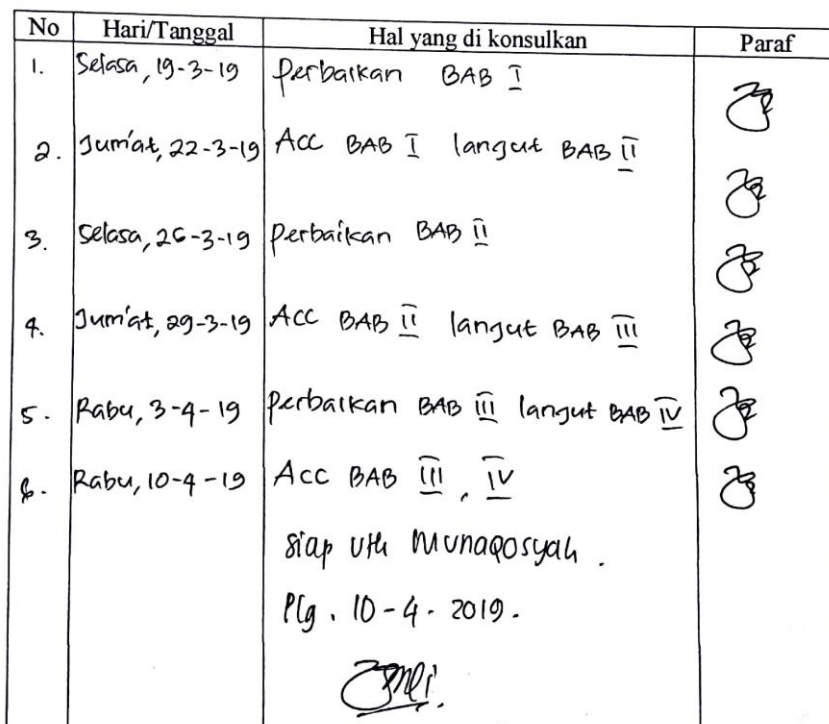 No Hari/Tanggal Hal yang di konsulkan Paraf
1. Selasa, 19-3-19 Perbaikan BAB I
2. Jum'at, 22-3-19 Acc BAB I langut BAB II
3. Selasa, 26-3-19 Perbaikan BAB II
4. Jum'at, 29-3-19 Acc BAB II langut BAB III
5. Rabu, 3-4-19 Perbaikan BAB III langut BAB IV
6. Rabu, 10-4-19 Acc BAB III, IV
siap utk Munaqosyah.
Plg. 10-4-2019.